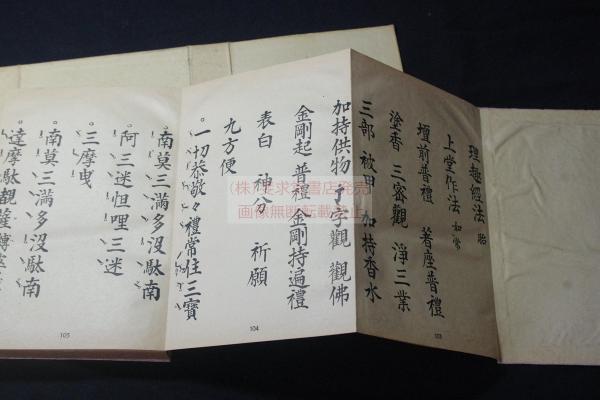 理趣經法 胎
上堂作法 如常
壇前普禮 著座普禮
塗香 三密觀 淨三業
三部 被甲 加持香水
加持供物 字觀 觀佛
金剛起 普禮 金剛持遍禮
表白 神分 祈願
九方便
一切恭敬々禮常住三寶
南莫三滿多沒駄南
阿三迷怛哩三迷
三摩曳
南莫三滿多沒駄南
達摩駄
103
104
105
画像無断転載禁止